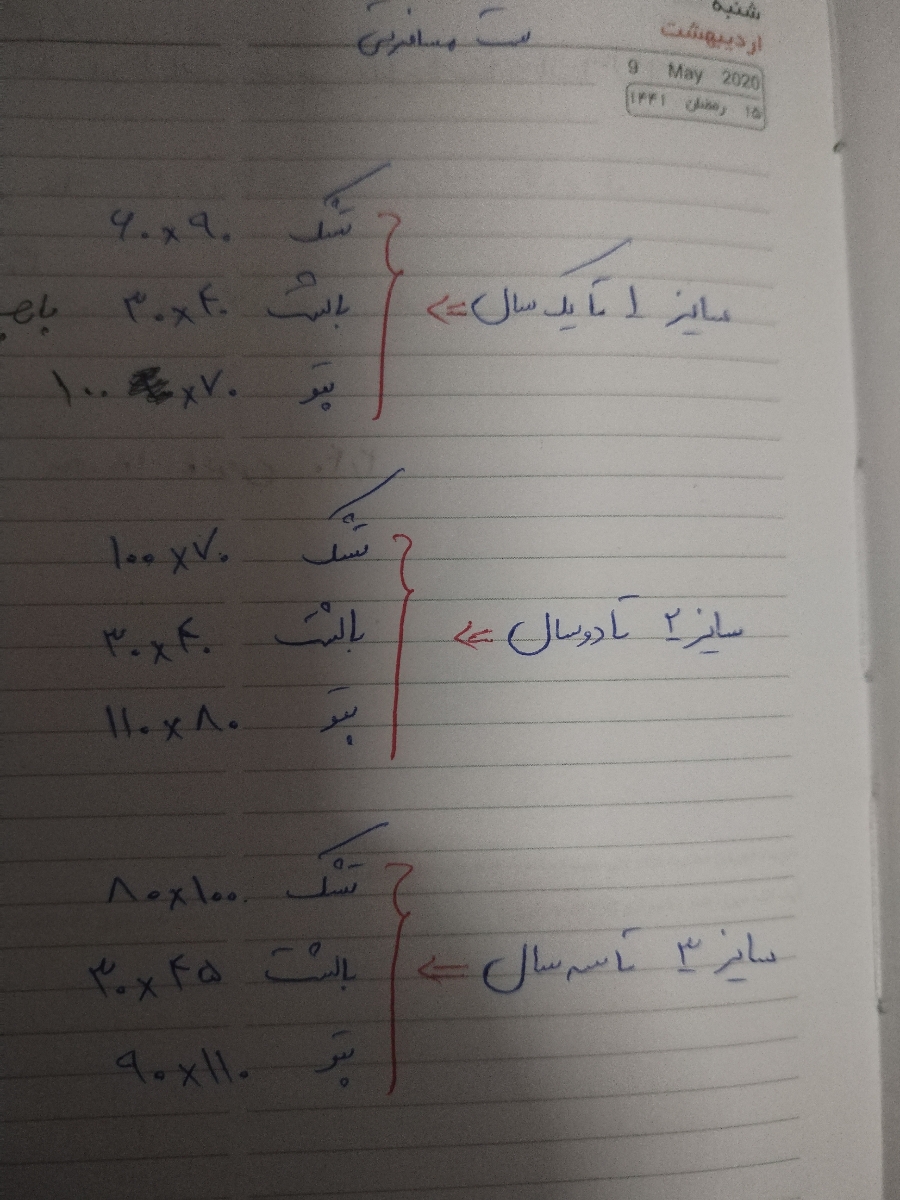 شنبه
اردیبهشت
9 May 2020
۱۵ رمضان ۱۴۴۱
ست مسافرتی
سایز ۱ تا یک سال <=
تشک ۶۰×۹۰
بالشت ۳۰×۴۰
پتو ۱۰۰ ×۷۰
سایز ۲ تا دو سال <=
تشک ۱۰۰×۷۰
بالشت ۳۰×۴۰
پتو ۱۱۰×۸۰
سایز ۳ تا سه سال <=
تشک ۸۰×۱۰۰
بالشت ۳۰×۴۵
پتو ۹۰×۱۱۰